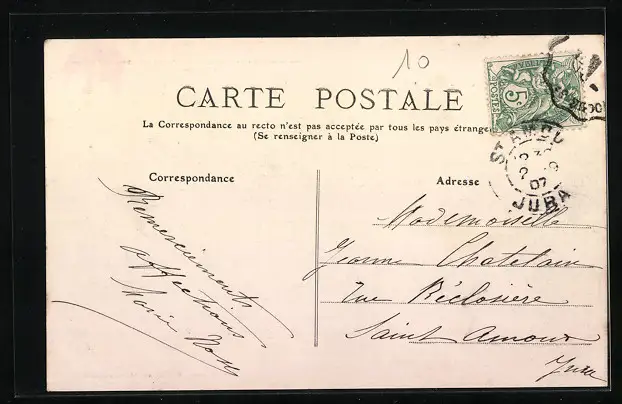 10
CARTE POSTALE
La Correspondance au recto n'est pas acceptée par tous les pays étranger
(Se renseigner à la Poste)
POSTES
5c
ST AMOU
07
JURA
Correspondance
Adresse
Remerciements
affections
Marie
Mademoiselle
Jeanne Chatelain
Rue Béclosière
Saint Amour
Jura